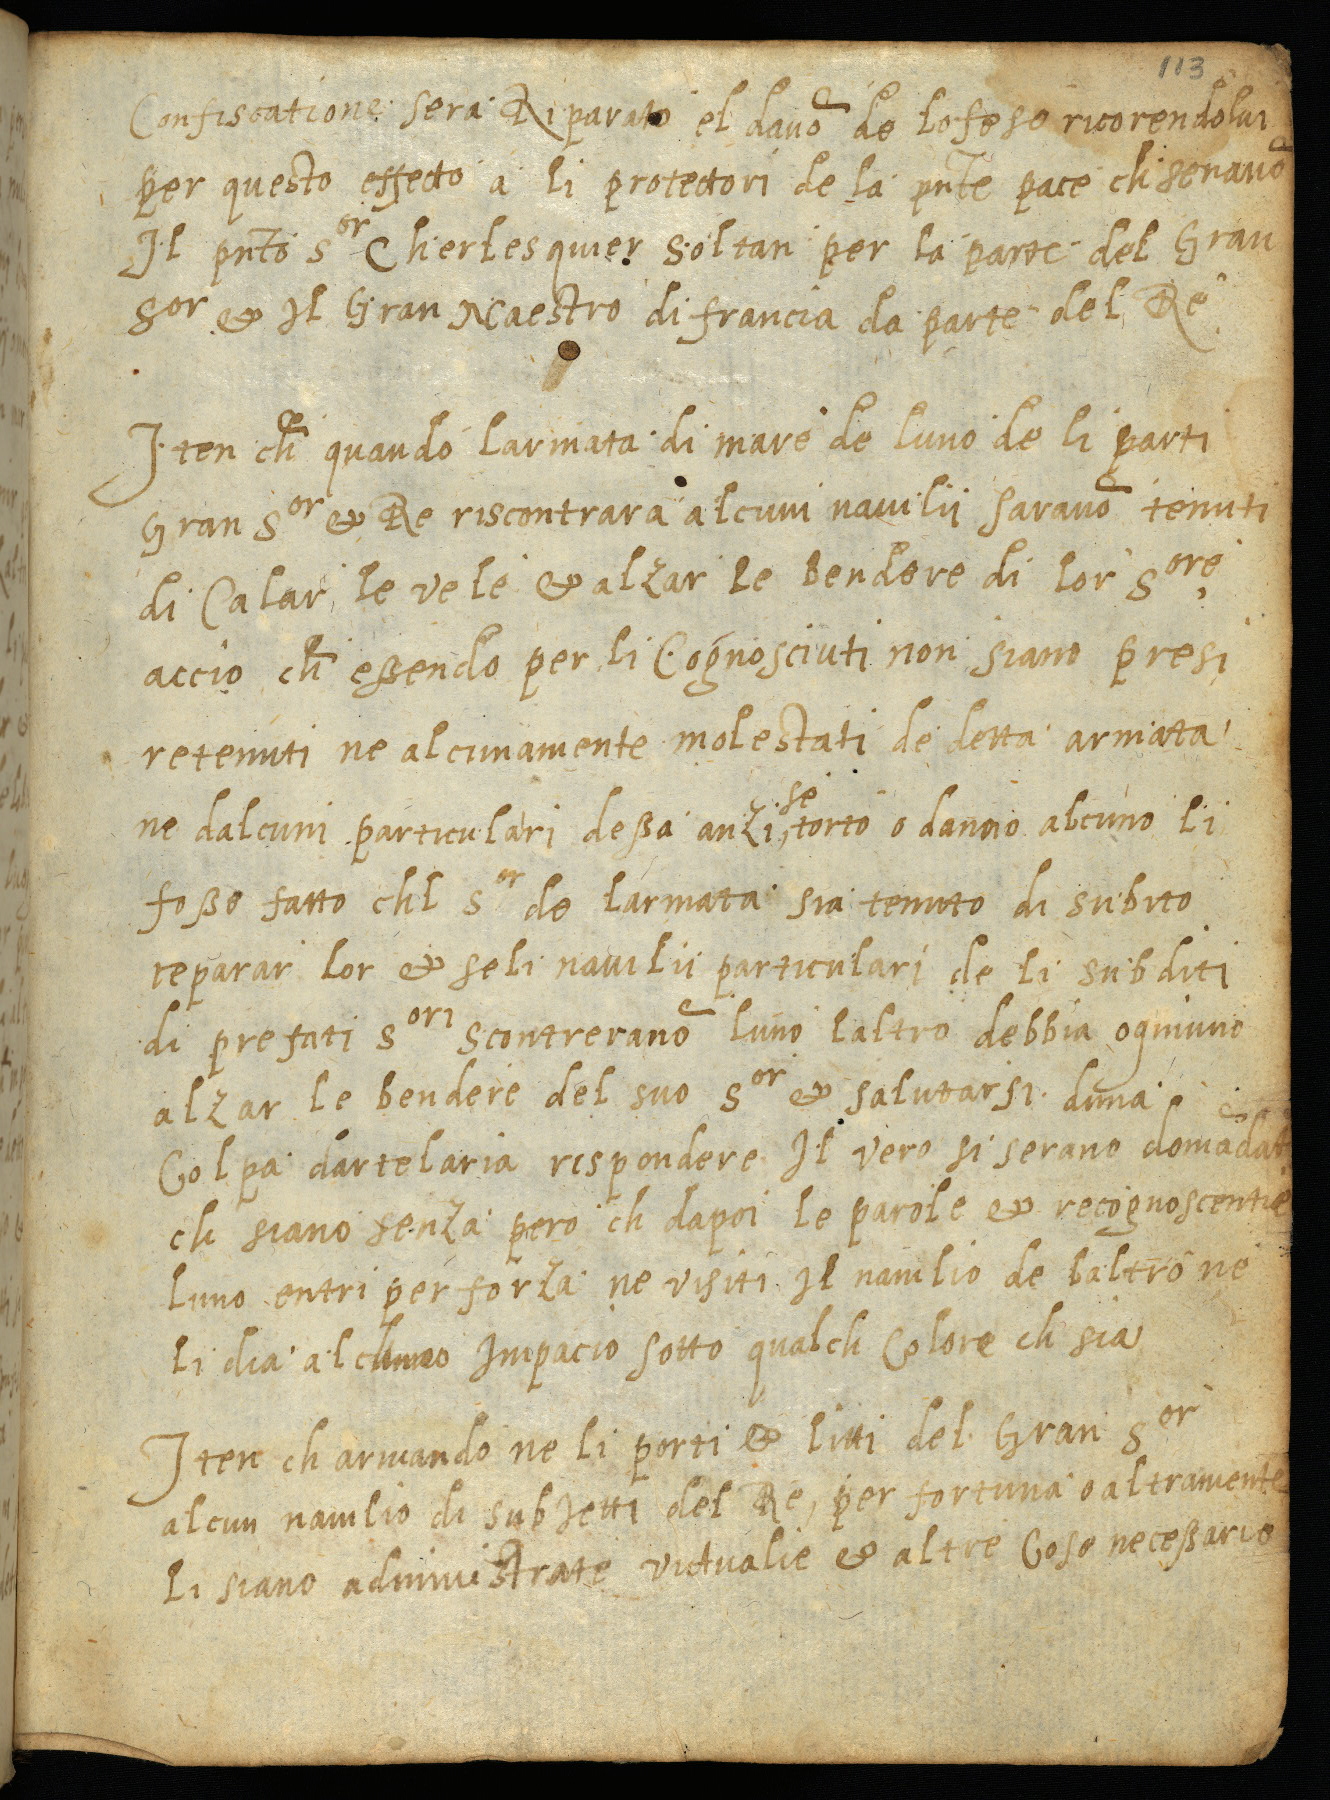 113
Confiscatione sera Riparato el danō de lofeso ricorendolui
per questo effecto a li protettori de la pnte pace ch seranō
Il pnto Sor Cherlesquier Soltan per la parte del Gran
Sor & Il Gran Maestro di francia da parte del Re
Iten ch quando larmata di mare de luno de li parti
Gran Sor & Re riscontrara alcuni navilii saranō tenuti
di Calar le vele & alzar le bendere di lor Sore,
accio ch eßendo per li Cognosciuti non siano presi
retenuti ne alcunamente molestati de detta armata
ne dalcuni particulari deßa anzi, se torto o danno alcuno li
foße fatto chl Sor de larmata sia tenuto di subito
reparar lor & se li navilii particulari de li subditi
di prefati Sori Scontreranō luno laltro debbia ogniuno
alzar le bendere del suo Sor & salutarsi duna
Colpa dartelaria respondere Il vero si serano domādati
ch siano senza pero ch dapoi le parole & recognoscentie
luno entri per forza ne visiti Il navilio de laltro ne
li dia alchuno Impacio sotto qualch Colore ch sia
Iten ch armando ne li porti & litti del Gran Sor
alcun navilio di subietti del Re, per fortuna o altramente
li siano administrate victualie & altre Cose neceßarie